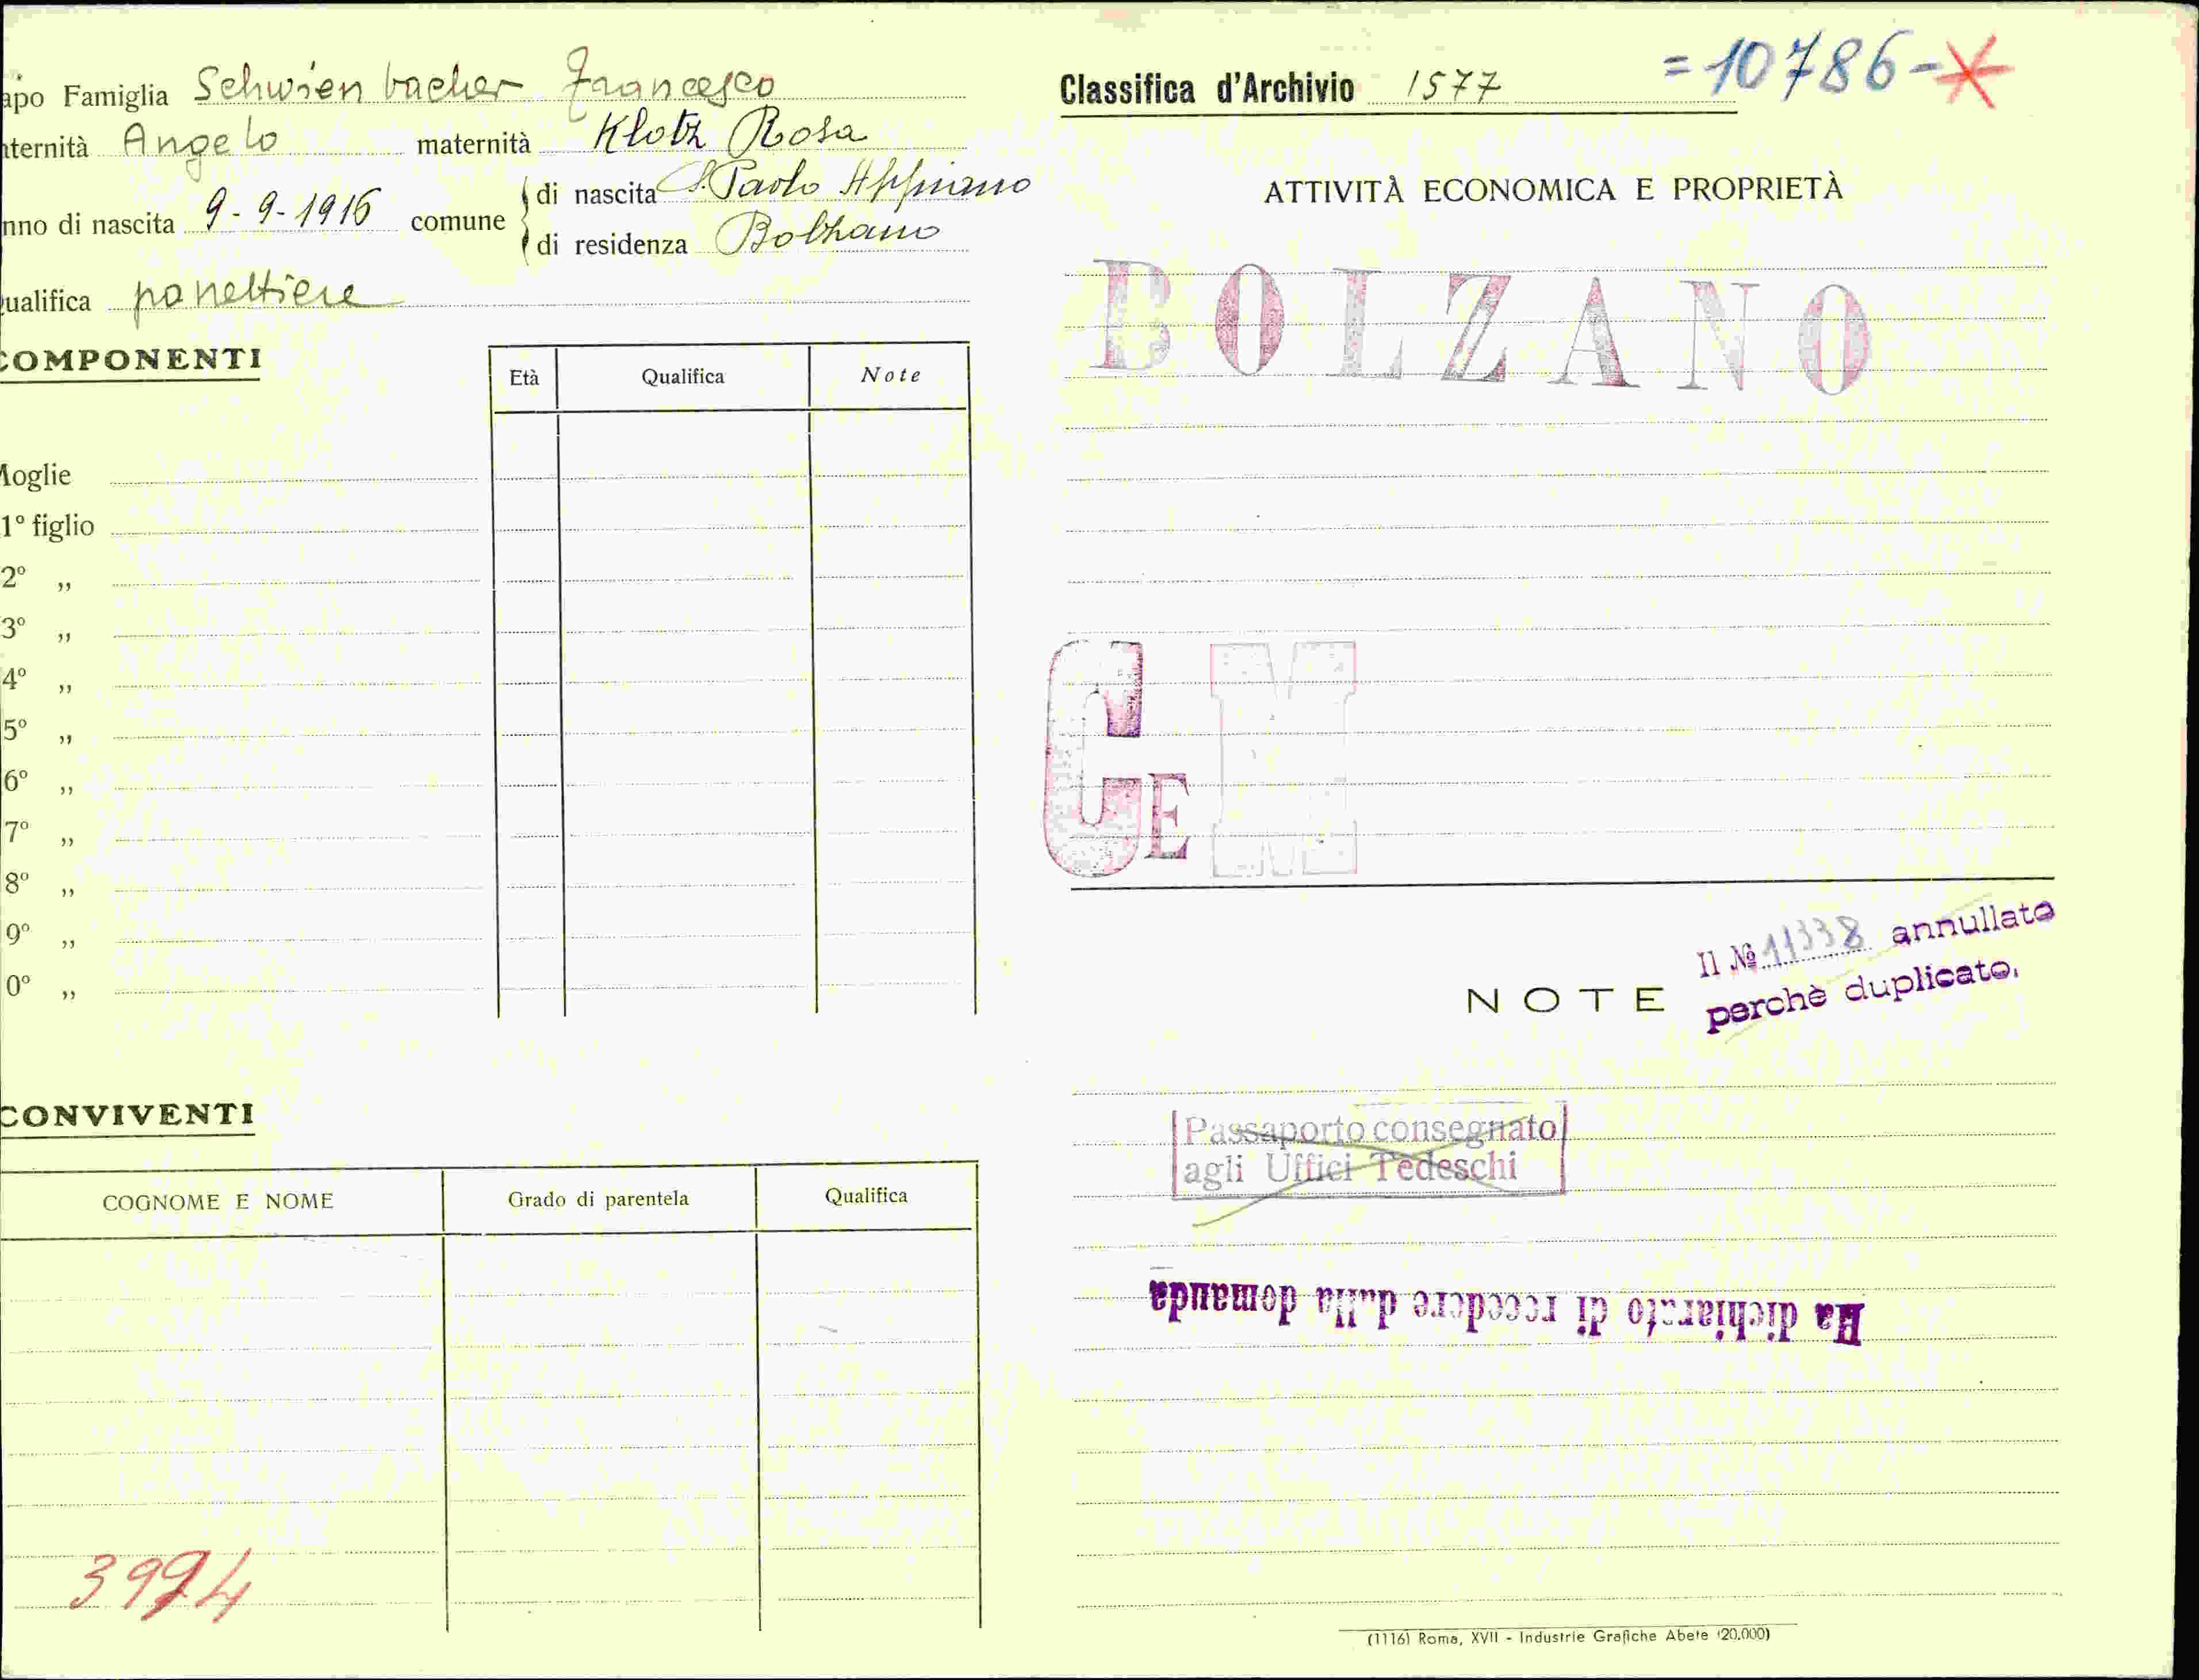 apo Famiglia Schwienbacher Francesco
aternità Angelo maternità Klotz Rosa
nno di nascita 9-9-1916 comune di nascita S. Paolo Appiano
di residenza Bolzano
ualifica panettiere
COMPONENTI
Età Qualifica Note
Moglie
1º figlio
2º „
3º „
4º „
5º „
6º „
7º „
8º „
9º „
0º „
CONVIVENTI
COGNOME E NOME Grado di parentela Qualifica
3994
Classifica d'Archivio 1577 =10786-*
ATTIVITÀ ECONOMICA E PROPRIETÀ
BOLZANO
GE N
Il Nº 11338 annullato
perchè duplicato.
NOTE
Passaporto consegnato
agli Uffici Tedeschi
Ha dichiarato di recedere dalla domanda
(1116) Roma, XVII - Industrie Grafiche Abete (20.000)